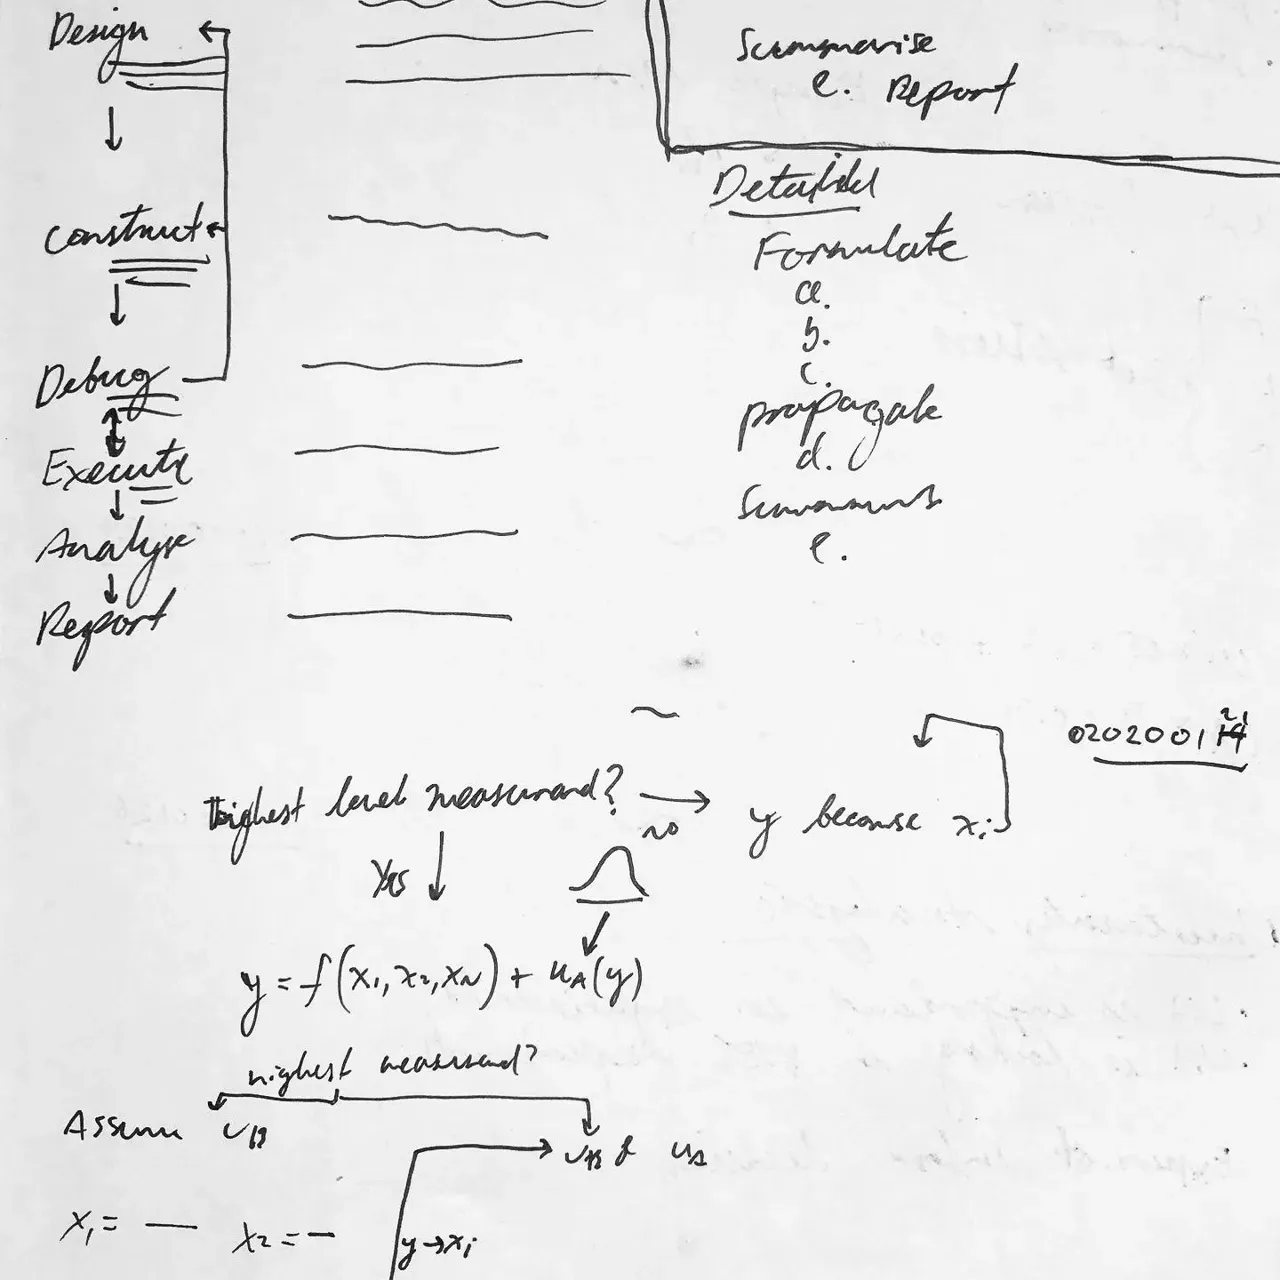 Design
Construct
Debug
Execute
Analyse
Report
Summarise
e. Report
Detailed
Formulate
a.
b.
c.
propagate
d.
e.
0202001
Highest level measurand?
no
y because xi
Yes
y = f(x1, x2, xN) + uA(y)
highest measurand?
Assume uB
uB & uA
x1 = —
x2 = —
y → xi